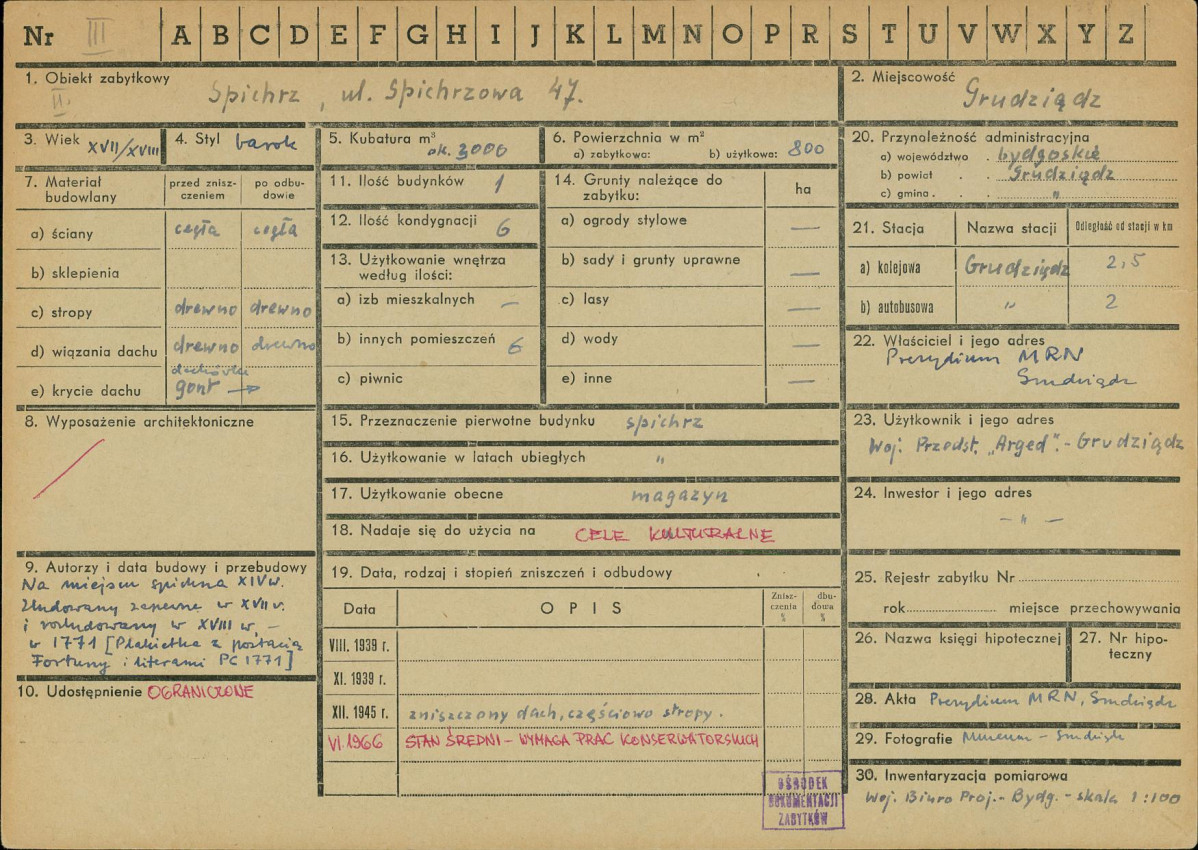 Nr III A B C D E F G H I J K L M N O P R S T U V W X Y Z
1. Obiekt zabytkowy
II. Spichrz, ul. Spichrzowa 47.
2. Miejscowość
Grudziądz
3. Wiek XVII/XVIII
4. Styl barok
5. Kubatura m³
ok. 3000
6. Powierzchnia w m²
a) zabytkowa: b) użytkowa: 800
20. Przynależność administracyjna
a) województwo . bydgoskie
b) powiat . . Grudziądz
c) gmina . "
7. Materiał
budowlany
przed znisz-
czeniem
po odbu-
dowie
a) ściany cegła cegła
b) sklepienia
c) stropy drewno drewno
d) wiązania dachu drewno drewno
dachówka
e) krycie dachu gont →
11. Ilość budynków 1
12. Ilość kondygnacji 6
13. Użytkowanie wnętrza
według ilości:
a) izb mieszkalnych –
b) innych pomieszczeń 6
c) piwnic
14. Grunty należące do
zabytku:
ha
a) ogrody stylowe —
b) sady i grunty uprawne —
c) lasy —
d) wody —
e) inne —
21. Stacja Nazwa stacji Odległość od stacji w km
a) kolejowa Grudziądz 2,5
b) autobusowa " 2
22. Właściciel i jego adres
Prezydium MRN
Grudziądz
8. Wyposażenie architektoniczne
15. Przeznaczenie pierwotne budynku spichrz
16. Użytkowanie w latach ubiegłych "
17. Użytkowanie obecne magazyn
18. Nadaje się do użycia na CELE KULTURALNE
23. Użytkownik i jego adres
Woj. Przedst. „Arged”.- Grudziądz
24. Inwestor i jego adres
— " —
9. Autorzy i data budowy i przebudowy
Na miejscu spichrza XIV w.
Zbudowany zapewne w XVII w.
i rozbudowany w XVIII w. –
w 1771 [Plakietka z postacią
Fortuny i literami PC 1771]
10. Udostępnienie OGRANICZONE
19. Data, rodzaj i stopień zniszczeń i odbudowy
Data OPIS
Znisz-
czenia
%
dbu-
dowa
%
VIII. 1939 r.
XI. 1939 r.
XII. 1945 r. zniszczony dach, częściowo stropy.
VI. 1966 STAN ŚREDNI – WYMAGA PRAC KONSERWATORSKICH
25. Rejestr zabytku Nr
rok miejsce przechowywania
26. Nazwa księgi hipotecznej
27. Nr hipo-
teczny
28. Akta Prezydium MRN, Grudziądz
29. Fotografie Muzeum – Grudziądz
30. Inwentaryzacja pomiarowa
Woj. Biuro Proj.- Bydg. – skala 1:100
OŚRODEK
DOKUMENTACJI
ZABYTKÓW